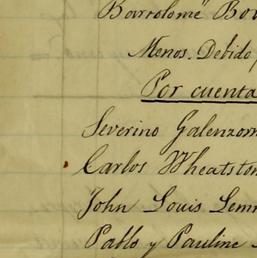 Bartolomé Bo
Menos. Debido
Por cuenta
Severino Galenzom
Carlos Wheatston
John Louis Lem
Pablo y Pauline